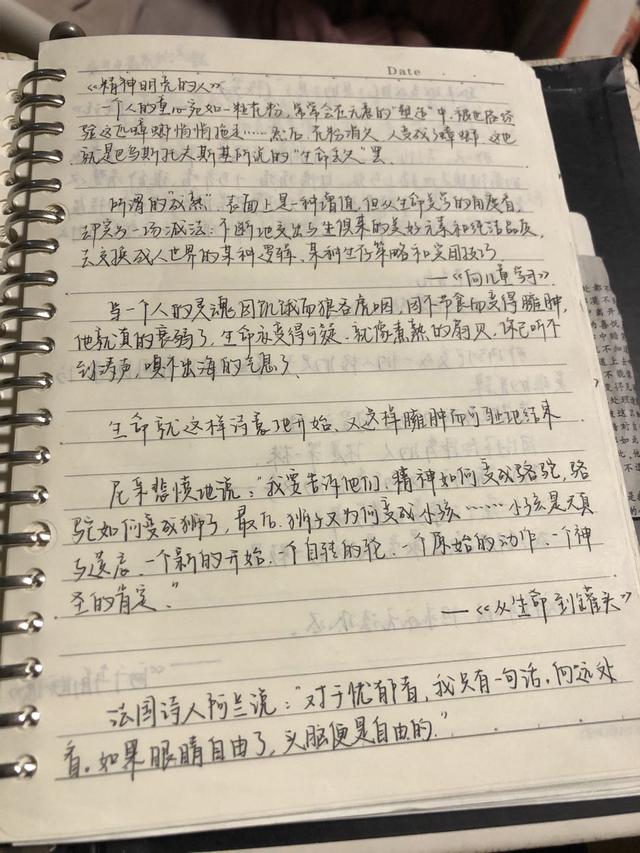 Date
《精神明亮的人》
一个人的童心宛如一粒花粉，常常会在无意的“塑造”中，被世俗经
验这匹蟑螂悄悄拖走……然后，花粉消失，人变成了蟑螂。这也
就是巴乌斯托夫斯基所说的“生命丢失”罢.
所谓的“成熟”，表面上是一种增值，但从生命美学的角度看，
却实为一场减法：不断地交出与生俱来的美好元素和纯洁品质，
去交换成人世界的某种逻辑、某种生存策略和实用技巧.
——《向儿童学习》.
当一个人的灵魂因饥饿而狼吞虎咽，因不节食而变得臃肿，
他就真的衰弱了，生命亦变得可疑.就像煮熟的扇贝，你已听不
到涛声，嗅不出海的气息了.
生命就这样诗意地开始、又这样臃肿而可耻地结束
尼采悲愤地说：“我要告诉他们，精神如何变成骆驼，骆
驼如何变成狮子，最后，狮子又为何变成小孩……小孩是天真
与遗忘、一个新的开始、一个自转的轮、一个原始的动作、一个神
圣的肯定.”
——《从生命到罐头》
法国诗人阿兰说：“对于忧郁者，我只有一句话，向远处
看。如果眼睛自由了，头脑便是自由的.”